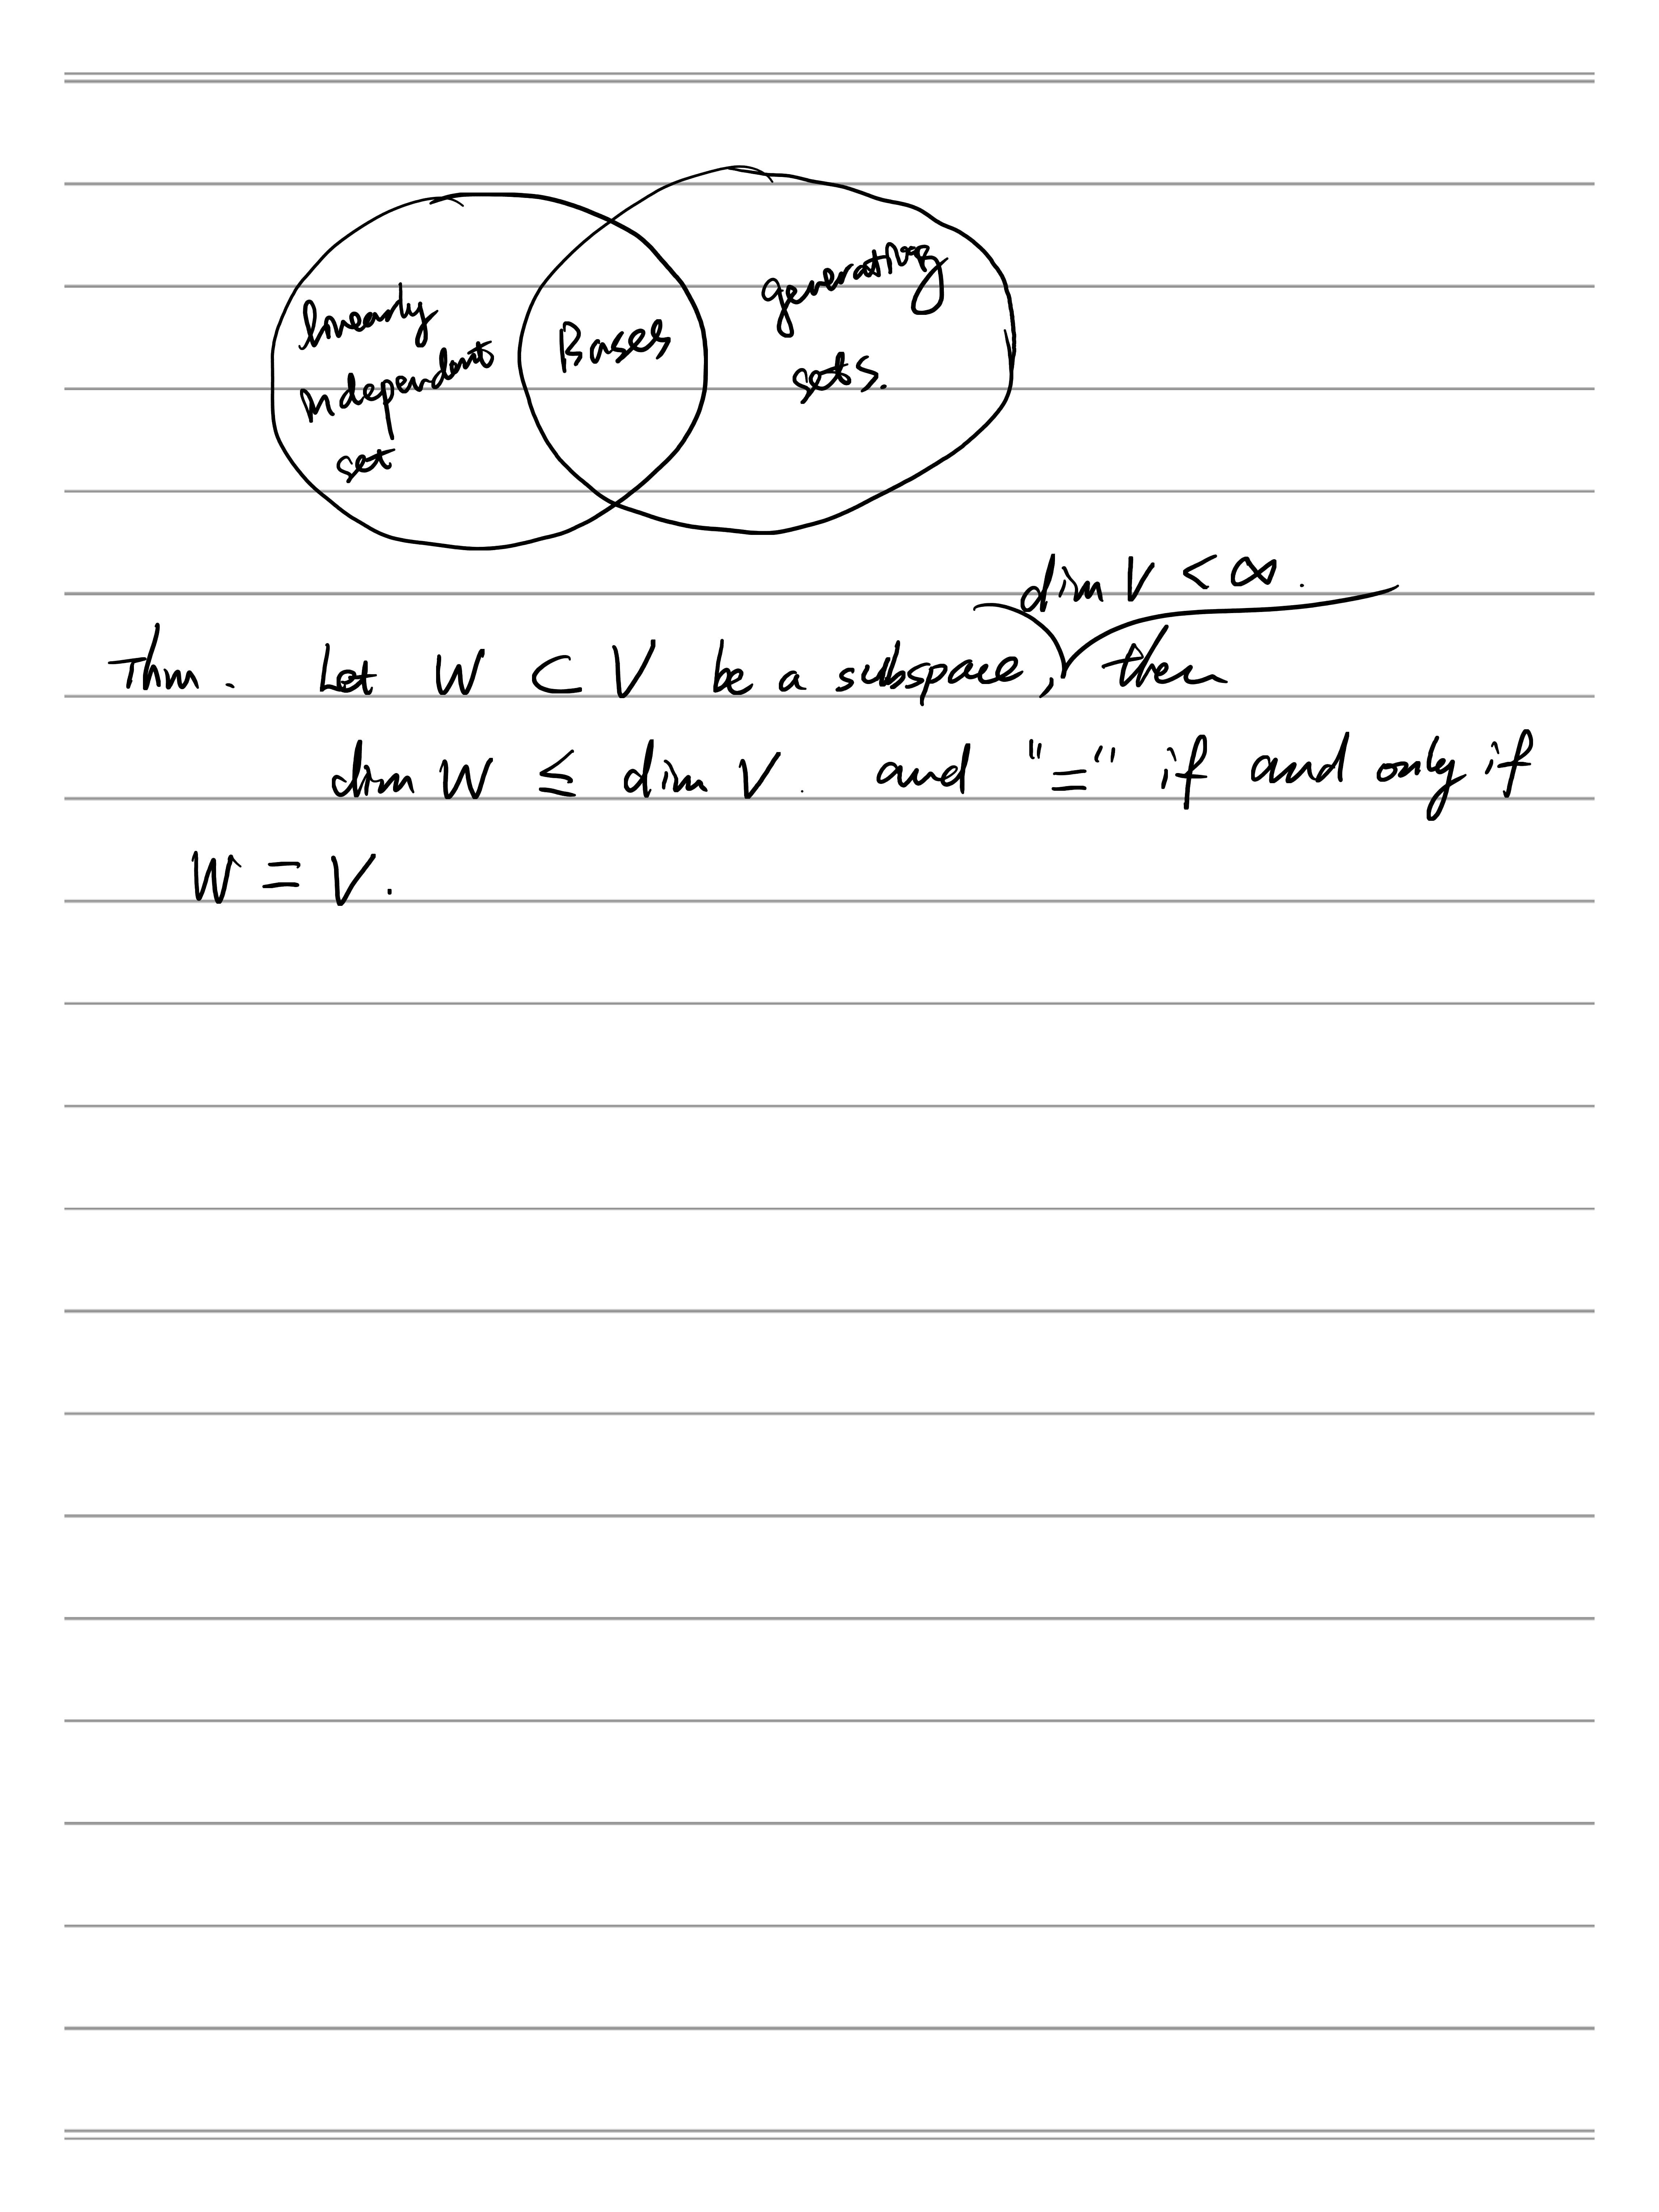 linearly
independent
set
Bases
generating
sets.
dim V < ∞.
Thm. Let W ⊂ V be a subspace, then
dim W ≤ dim V. and "=" if and only if
W = V.